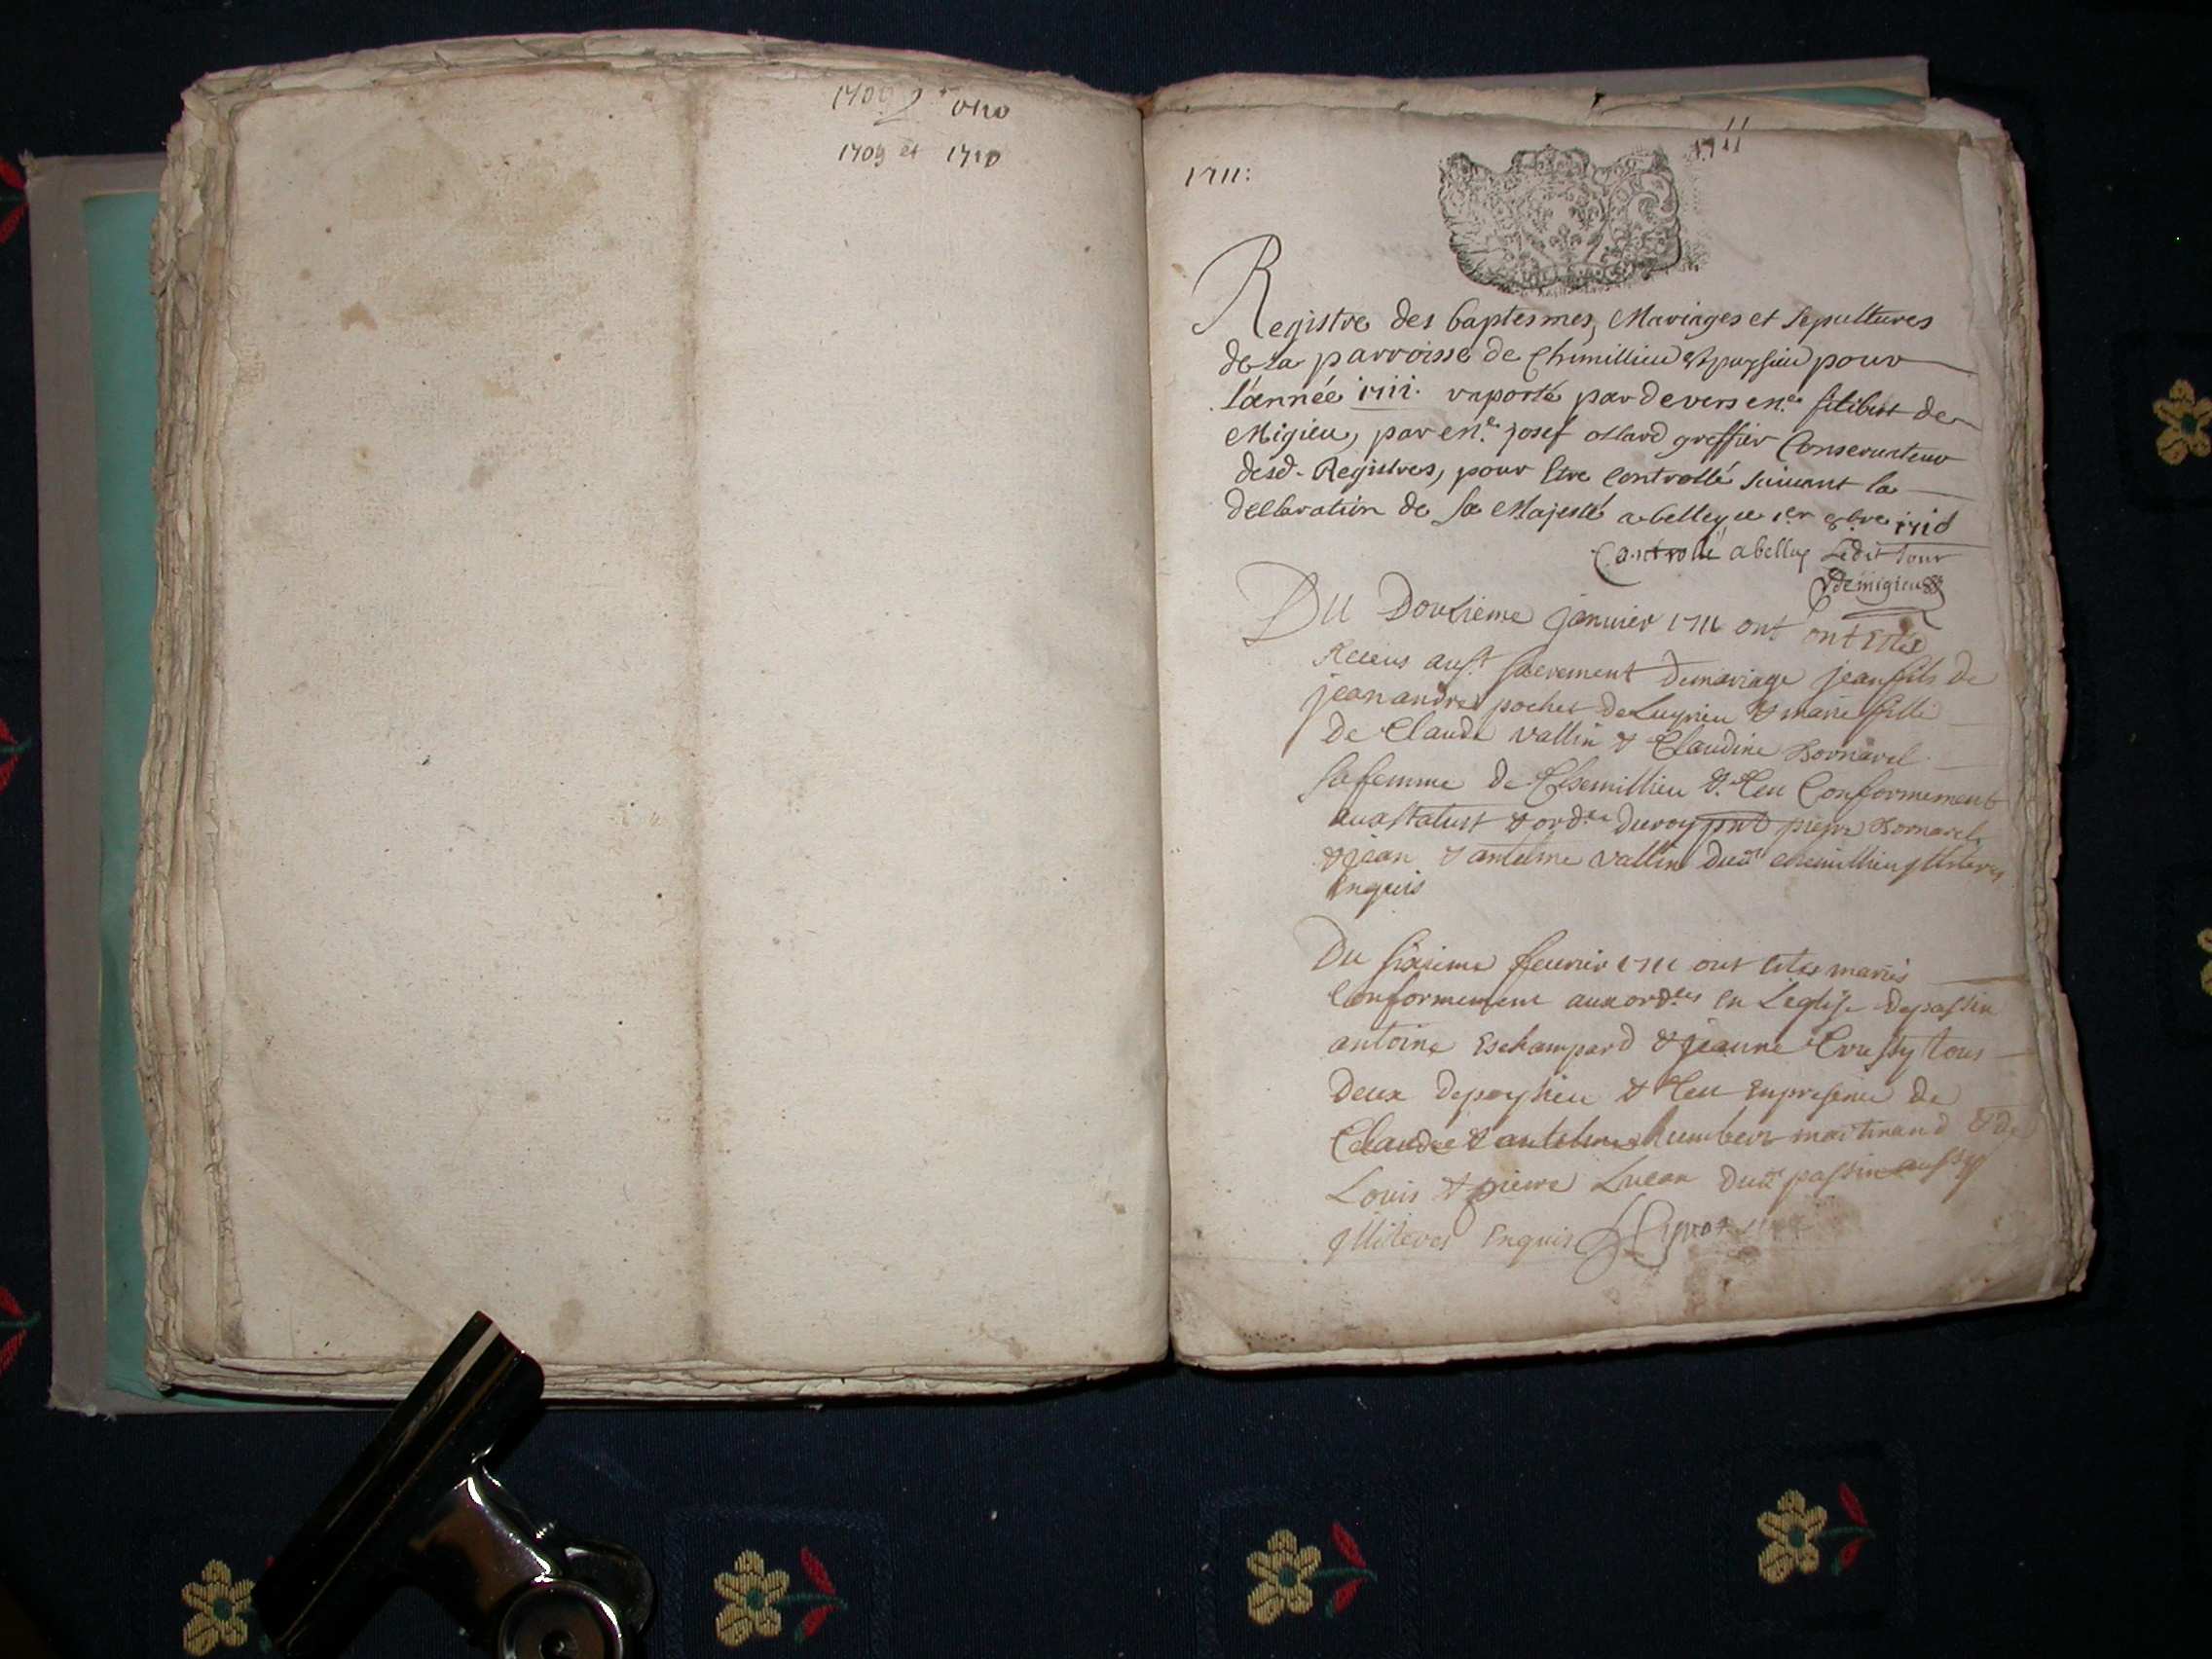 1709 et 1710
1711:
1711
Registre des baptesmes, Mariages et Sepultures
de la parroisse de Chimillieu et poysieu pour
l'année 1711. raporté par devers en.e filibert de
Migieu, par en.e Josef ollard greffier Conservateur
desd. Registres, pour Etre Controllé suivant la
declaration de Sa Majesté a belley ce 1er
Controllé a belley Ledit Jour
demigieu
Du Douzieme januier 1711 ont ont Estés
Receus au st. sacrement de mariage jean fils de
jean andre pochet de Luyrieu & marie fille
de Claude vallin & Claudine Bornarel
sa femme de Chemillieu & Ceu Conformement
aux statust & ord.ces du roy pnt pierre Bornarel
& jean & antelme vallin dud chemillieu illiteres
Enquis
Du sixieme feurier 1711 ont Estes mariés
Conformement aux ord.ces en Leglise de passin
antoine Eschampard & jeanne Crussy tous
deux de poysieu & Ceu En presence de
Claude & antelme humbert martinand & de
Louis & pierre Lucan dud passin aussy
illiteres Enquis